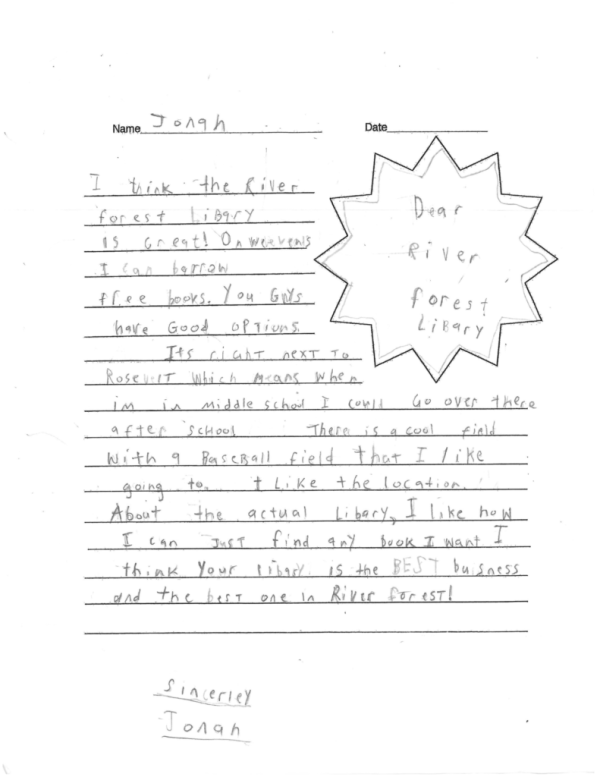 Name Jonah
Date
Dear
River
forest
Library
I think the River
forest Libary
is Great! On weevens
I can borrow
free books. You Guys
have Good options.
Its right next to
Rosevelt which means when
im in middle school I could Go over there
after school There is a cool field
with a Baseball field that I like
going to. I Like the location.
About the actual Libary, I like how
I can Just find any book I want I
think Your libary is the BEST buisness
and the best one in River forest!
Sincerley
Jonah